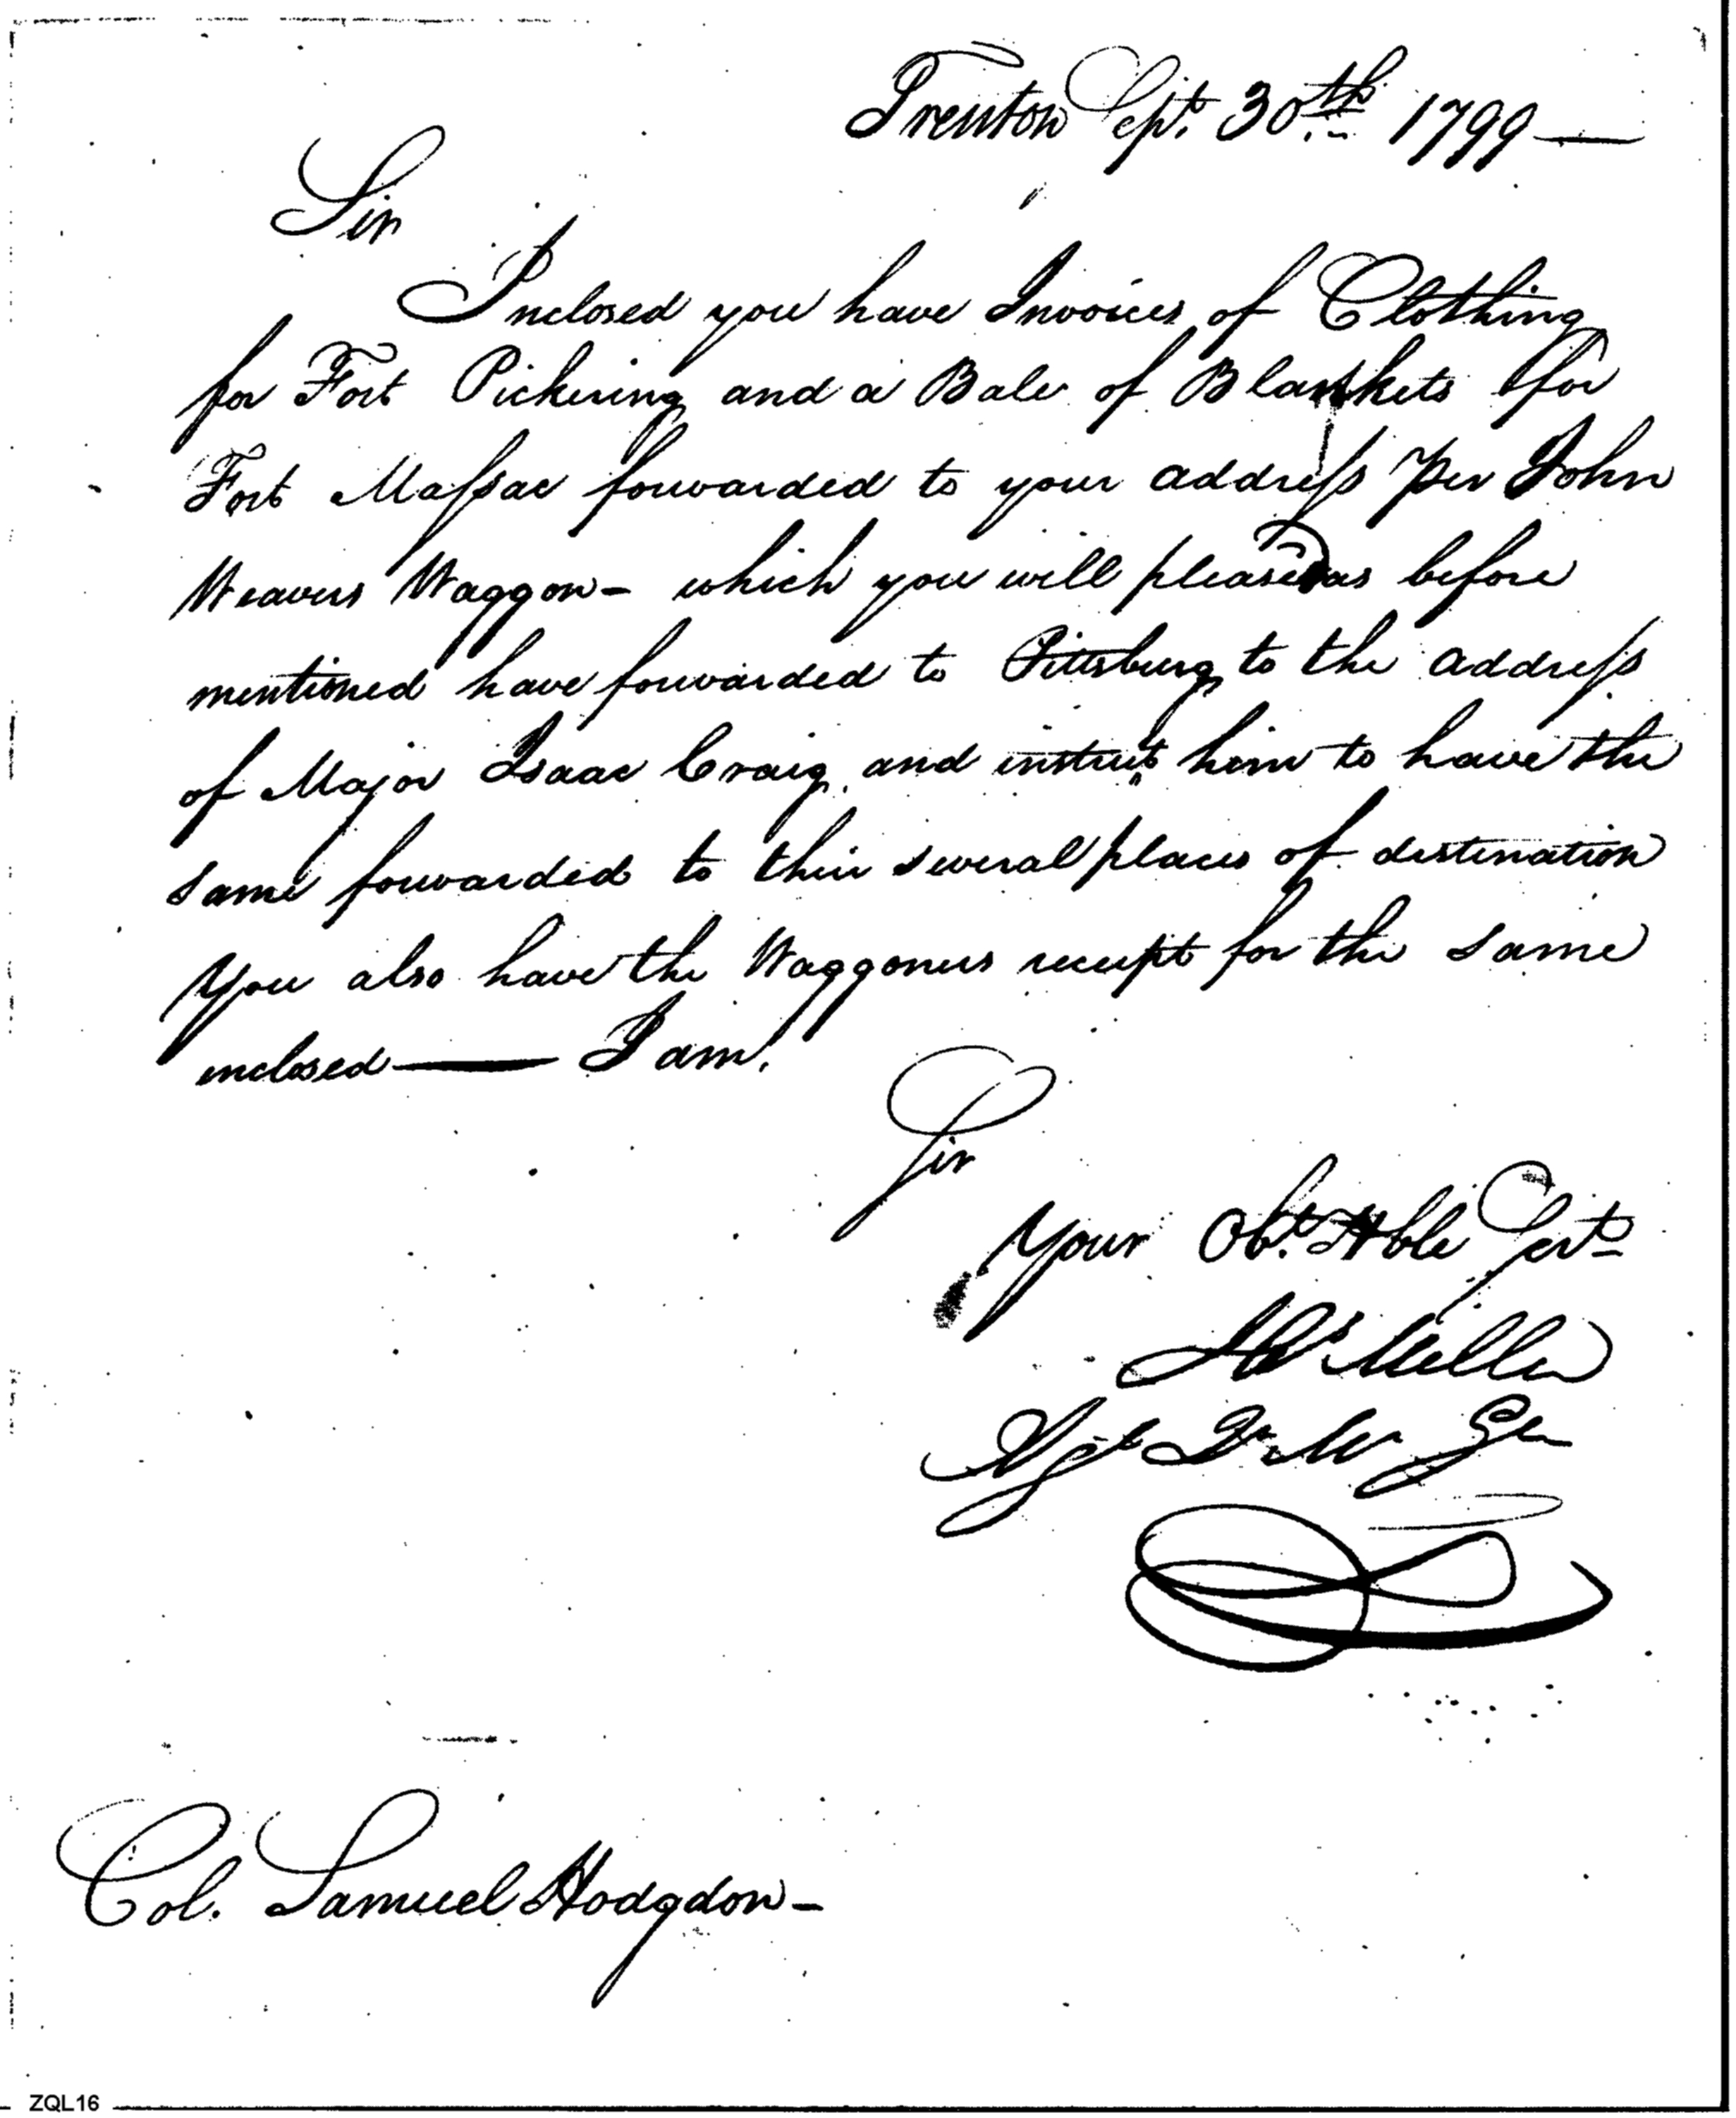 Trenton Sept. 30th 1799 —
Sir
Inclosed you have Invoices of Clothing
for Fort Pickering and a Bale of Blankets for
Fort Massac forwarded to your address Per John
Weavers Waggon - which you will please as before
mentioned have forwarded to Pittsburg to the address
of Major Isaac Craig and instruct him to have the
same forwarded to their several places of destination
You also have the Waggoners receipt for the same
inclosed — I am.
Sir
Your Obt. Hble Servt
Miller
Agt Qr. Mr Gen
Col. Samuel Hodgdon -
ZQL16